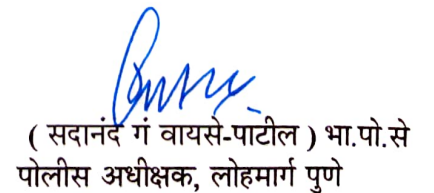 ( सदानंद गं वायसे-पाटील ) भा.पो.से
पोलीस अधीक्षक, लोहमार्ग पुणे